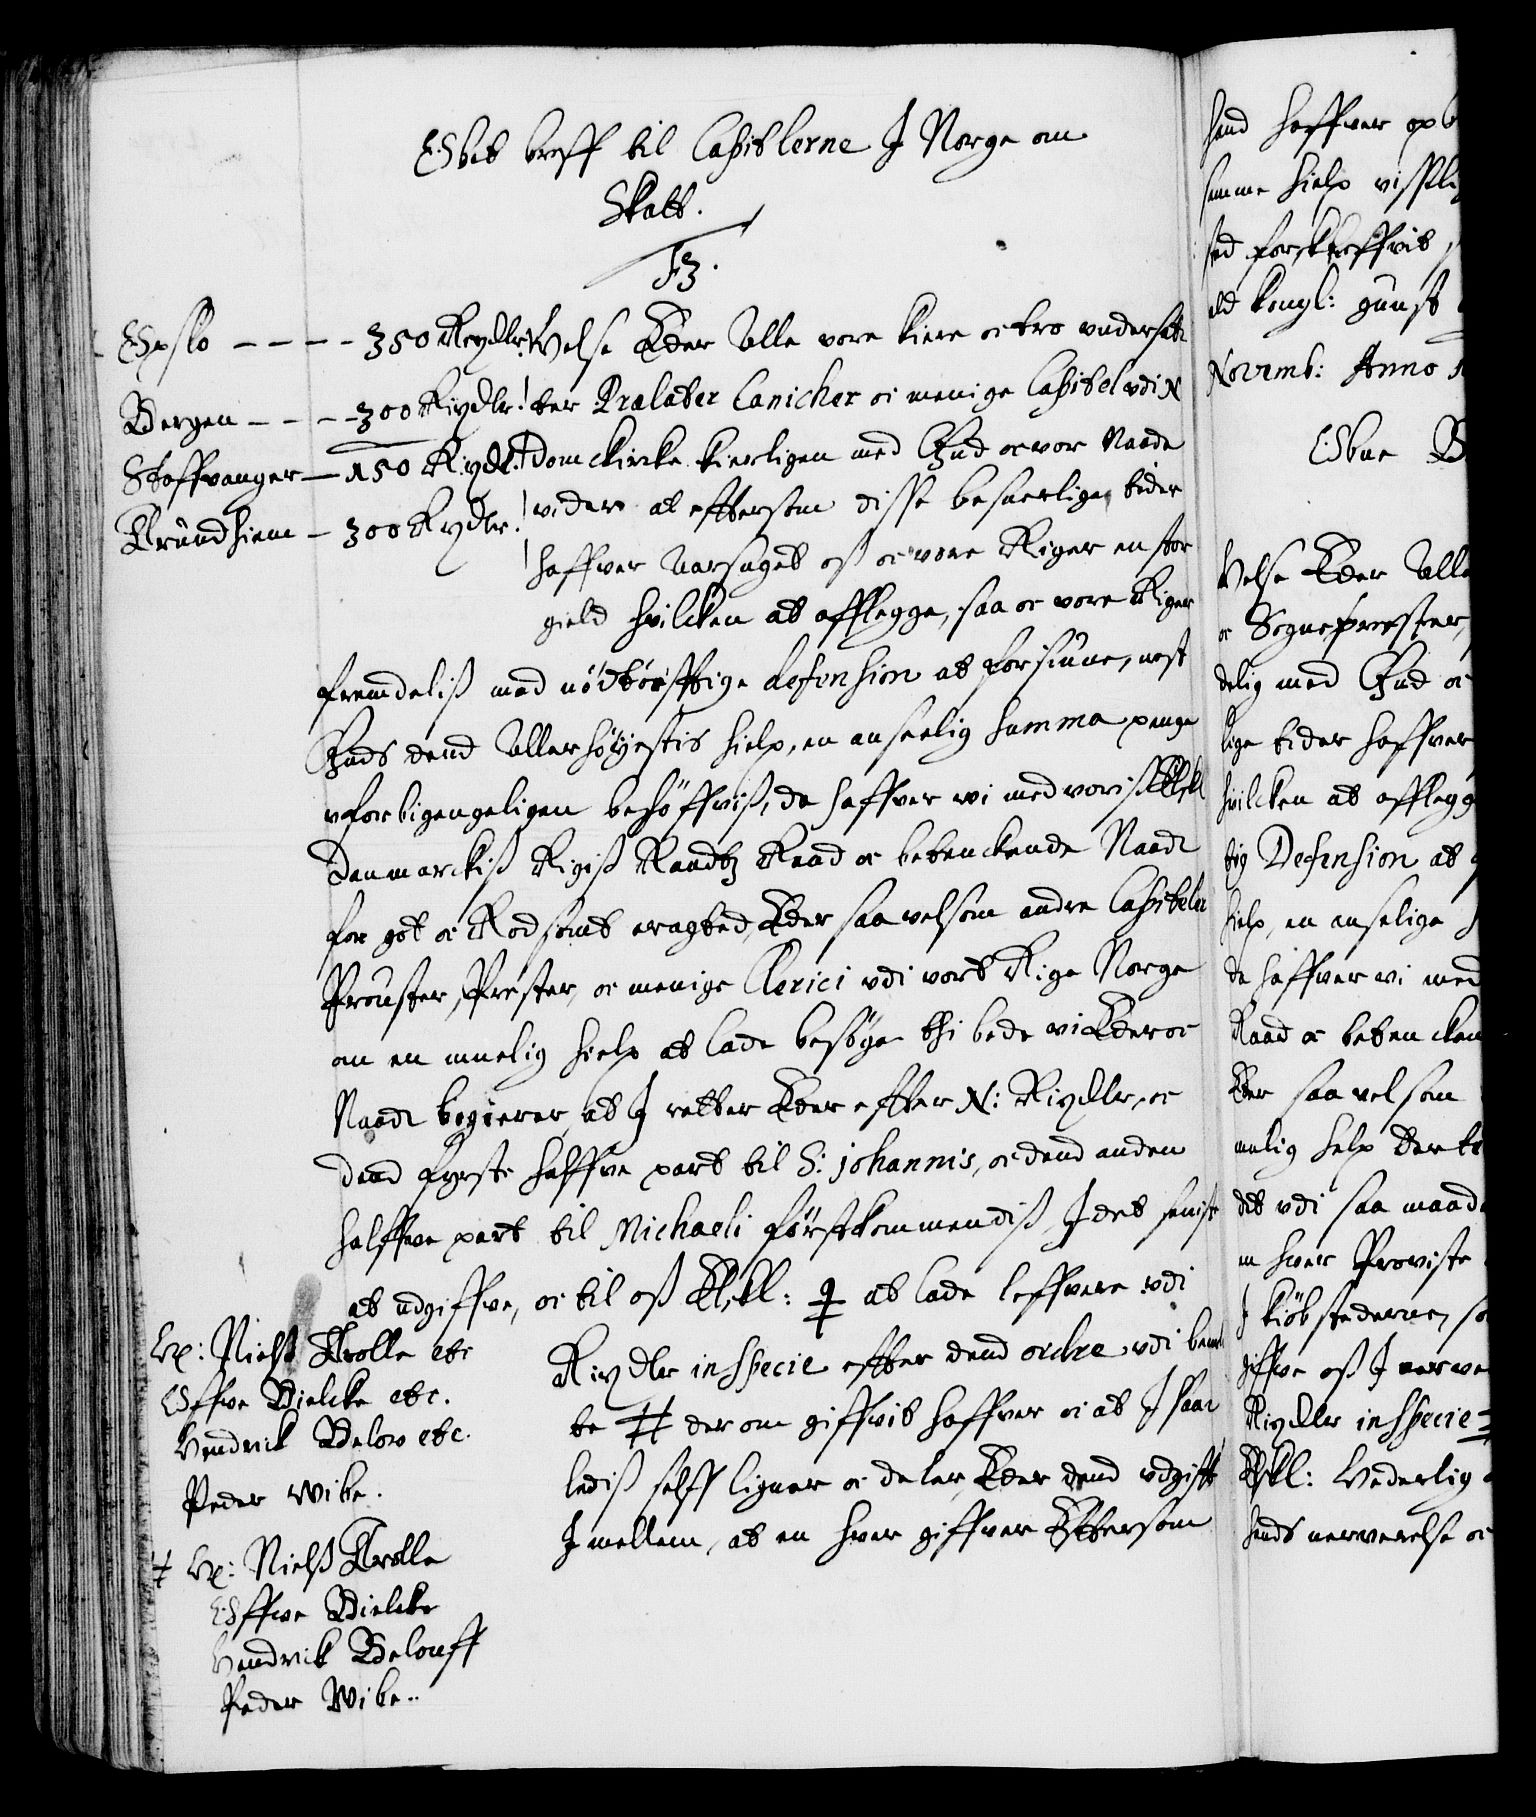 Obet breff til Capitlerne J Norge om
Skatt.
F3.
Opslo - - - - 350 Rixdlr
Bergen - - - - 300 Rixdlr
Staffvanger - 150 Rixdl:
Trundhiem - 300 Rixdlr
Helse Eder Alle vore kiere oc tro undersat
ter Prælater Canicker oc menige Capitel udi N
Domckircke kierligen med Gud oc vor Naade
vider at efftersom disse besuerlige tider
haffver Aarsaget oß oc vore Riger en stor
gield huilcken at afflegge, saa oc vore Riger
fremdeliß med nödtörfftige defension at forsiune, nest
Guds dend Allerhöÿestis hielp, en anseelig summa penge
uforbigengeligen behöffviß, da haffver wi med voris Elskl
Danmarckiß Rigiß Raadtz Raad oc betenckende Naadl
for got oc Rodsomt eragted, Eder saa velsom andre Capitler
Prouster, Prester, oc menige Clerici udi vort Rige Norge
om en muelig hielp at lade besöge thi bede vi Eder oc
Naadl begierer, at J retter Eder effter N: Rixdlr, oc
dend förste halffve part til S: johannis, oc dend anden
halffve part til Michaeli förstkommendiß J det seniste
at udgiffve, oc til oß Elskl: ♀ at lade leffvere udi
Rixdlr in specie effter dend ordre udi bem
te # der om giffvit haffver oc at J saa
lediß selff ligner oc deler Eder dend udgifft
J mellem, at en huer giffver Efftersom
Hr: Nielß Trolle etc
Offve Bielcke etc.
Hendrick Below etc.
Peder Wibe.
# Hr: Nielß Trolle
Offve Bielcke
Hendrick Belouff
Peder Wibe..
hand haffver op
samme hielp visseli
sed forskreffvit
ald kongl: gunst
Novemb: Anno
Obne B
Helse Eder Alle
oc Sogneprester,
delig med Gud oc
lige tider haffver
huilcken at afflegg
tig Defension at
hielp, en anselige
da haffver wi med
Raad oc betencken
Eder saa vel som
mulig help der
det udi saa maad
en huer Proviste
J kiöbstederne, so
giffve oß J nerve
Rixdlr in specie
Elskl: Vederlig
hends nerverelse oc